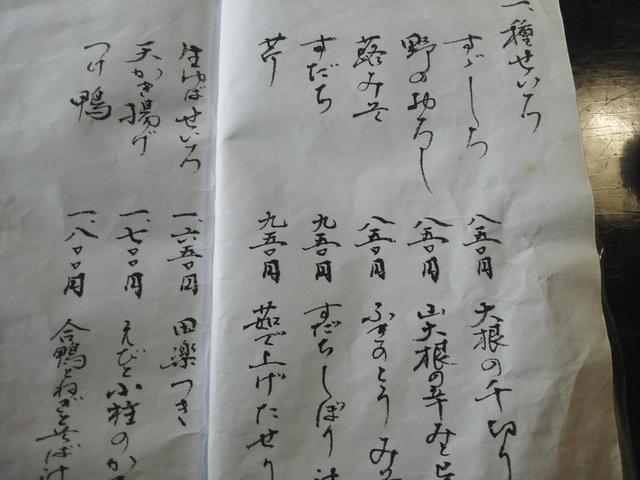 一、種せいろ
すゞしろ 八五〇円 大根の千切り
野のおろし 八五〇円 山大根の辛み
蕗みそ 八五〇円 ふきのとうみそ
すだち 九五〇円 すだちしぼり汁
芹 九五〇円 茹で上げたせり
生ゆばせいろ 一、六五〇円 田楽つき
天かき揚げ 一、七〇〇円 えびと小柱のか
つけ鴨 一、八〇〇円 合鴨とねぎと